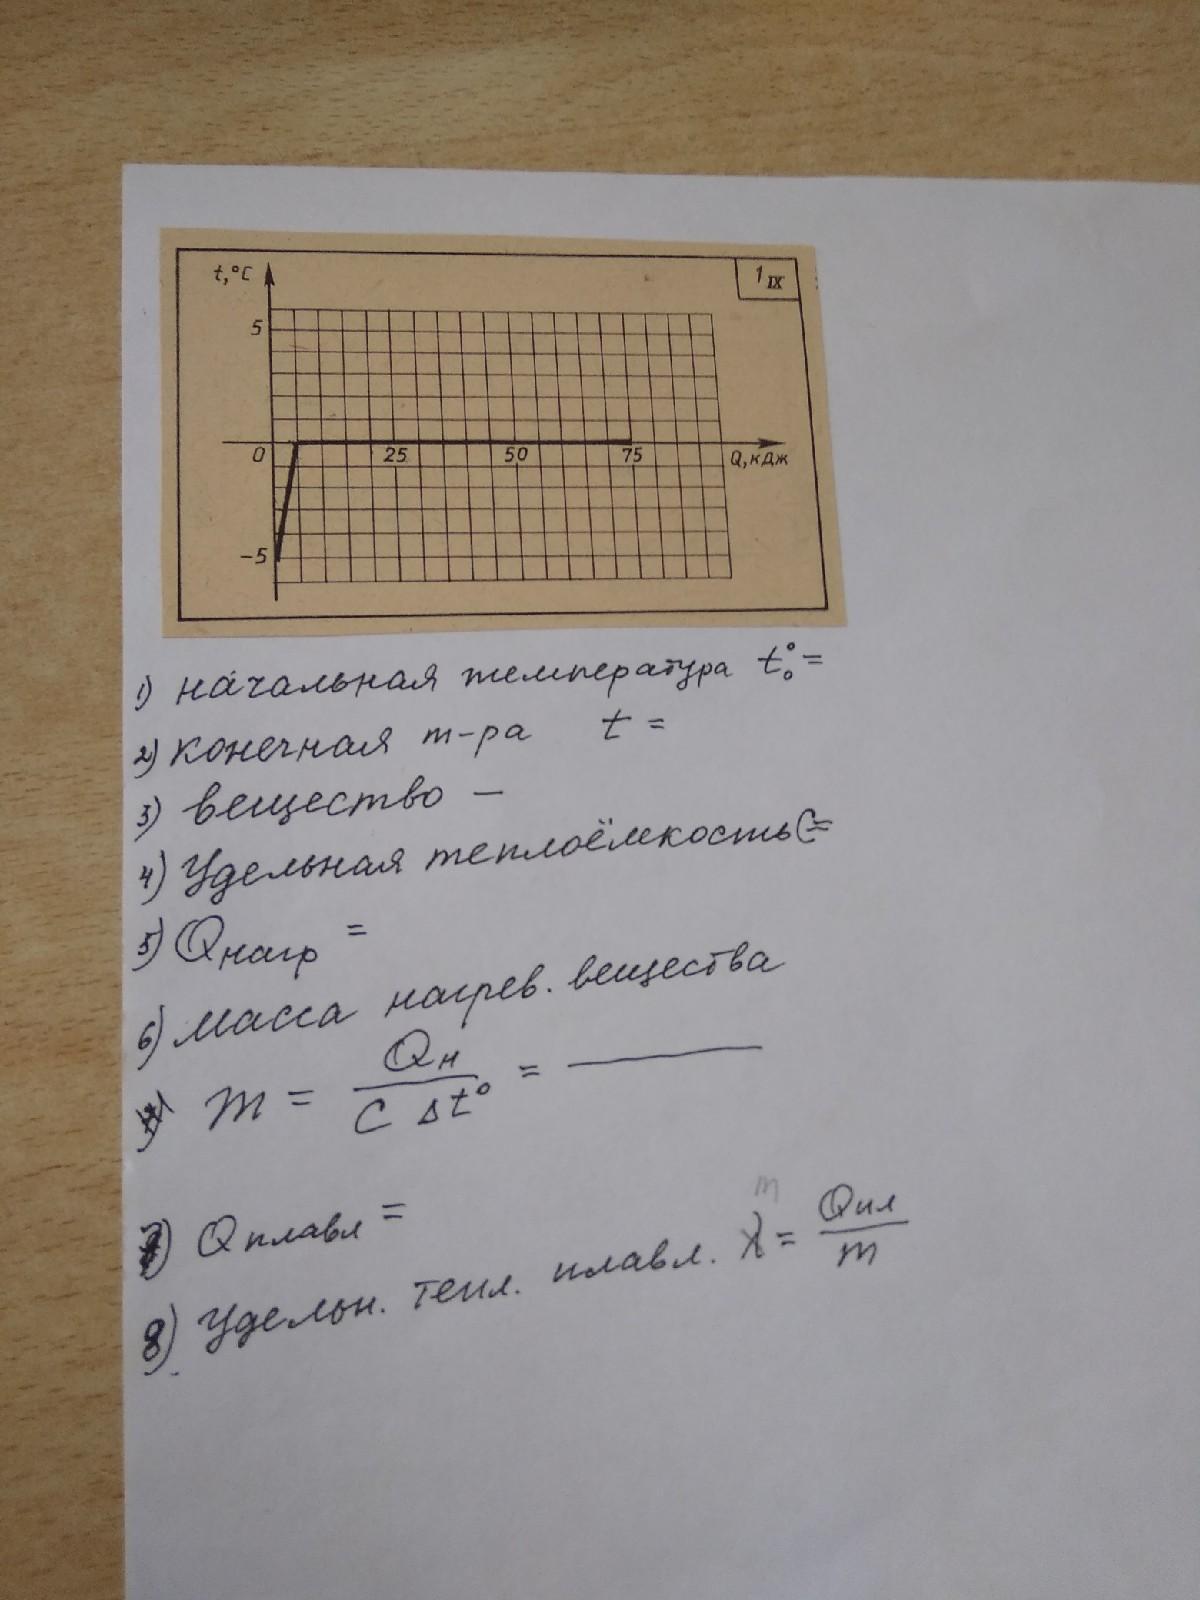 t,°C
1 IX
5
0
25
50
75
Q,кДж
-5
1) начальная температура t₀°=
2) конечная т-ра t =
3) вещество —
4) Удельная теплоёмкость C=
5) Qнагр =
6) Масса нагрев. вещества
m = Qн / C Δt° =
7) Qплавл =
m
8) Удельн. тепл. плавл. λ = Qпл / m